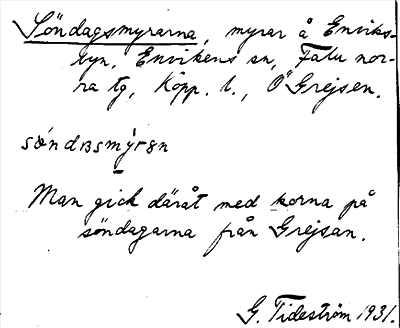 Söndagsmyrarna, myrar å Enviks-
byn, Envikens sn, Falu nor-
ra tg, Kopp. l., Ö Grejsen.
Man gick däråt med korna på
söndagarna från Grejsan.
G. Tideström 1931.